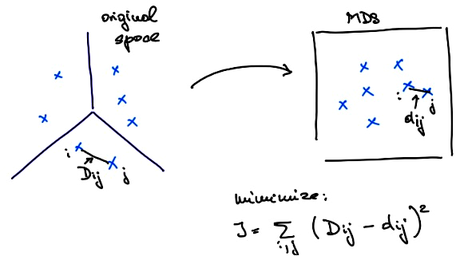 original
space
MDS
i
j
Dij
i
j
dij
minimize:
J = Σ i,j (Dij - dij)²